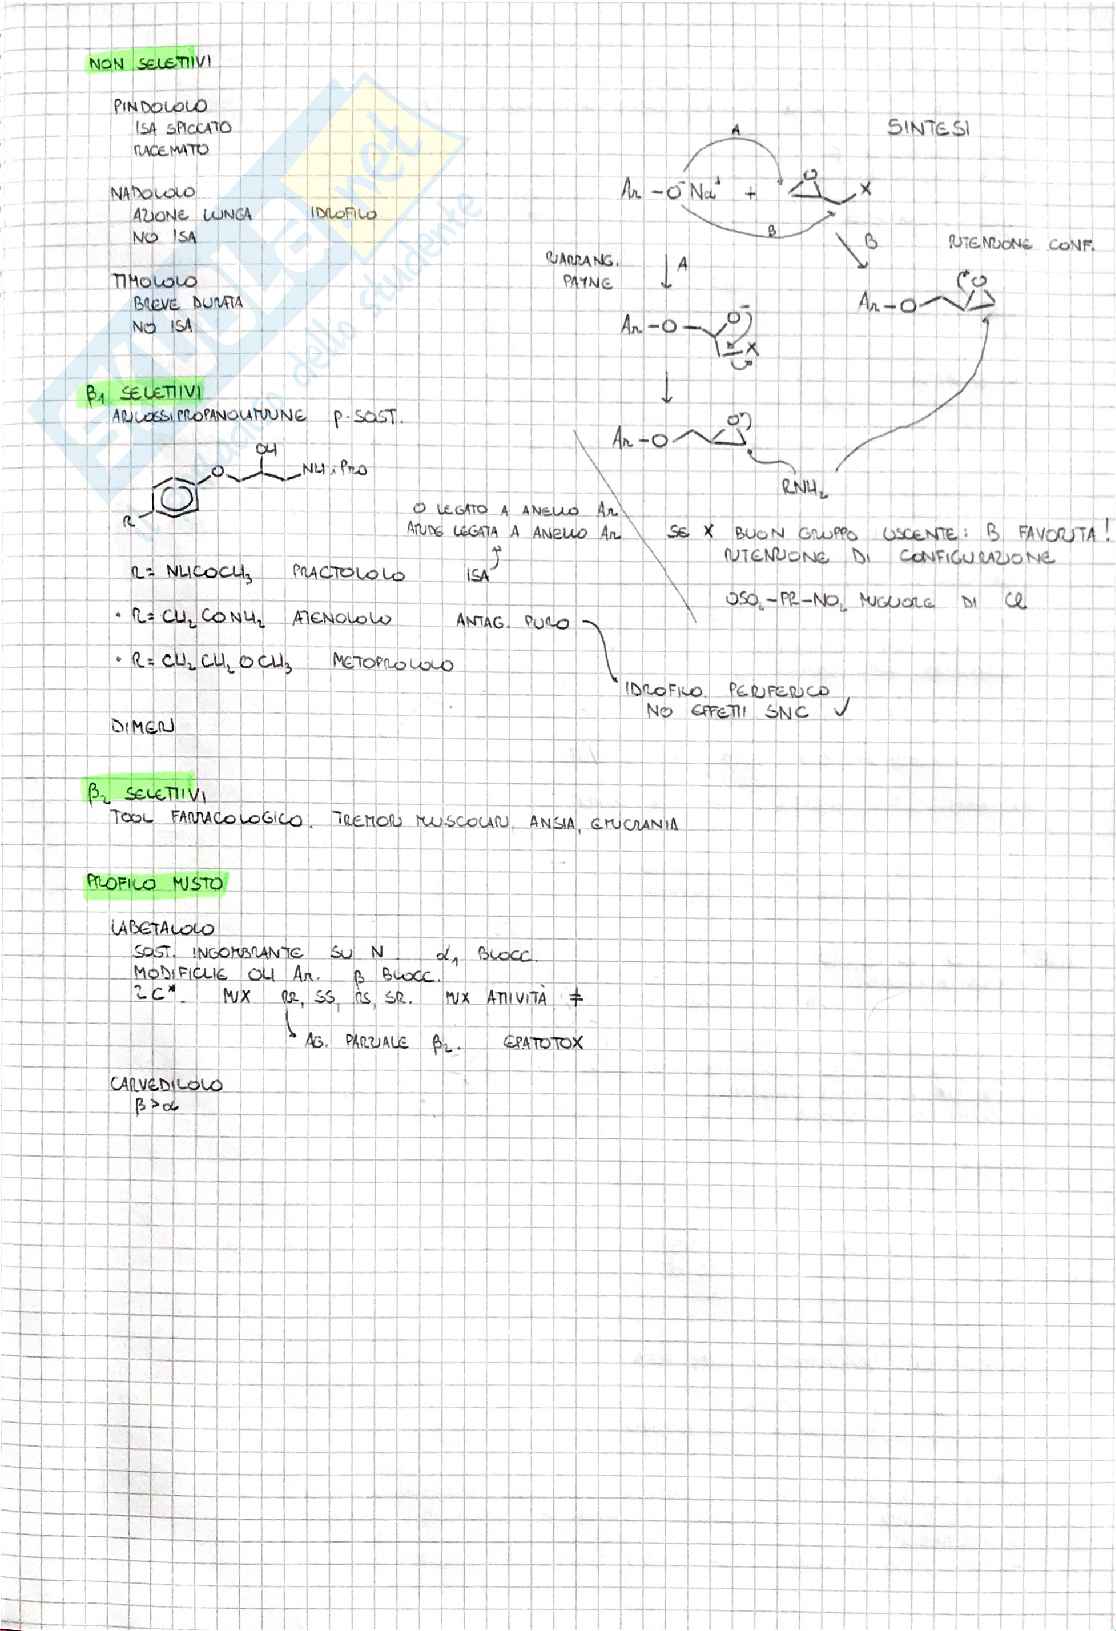 NON SELETTIVI
PINDOLOLO
ISA SPICCATO
RACEMATO
NADOLOLO
AZIONE LUNGA IDROFILO
NO ISA
TIMOLOLO
BREVE DURATA
NO ISA
β1 SELETTIVI
ARILOSSIPROPANOLAMMINE p-SOST.
OH
O
NH-iPrO
R
O LEGATO A ANELLO Ar
AMIDE LEGATA A ANELLO Ar
R = NHCOCH3 PRACTOLOLO ISA
• R = CH2CONH2 ATENOLOLO ANTAG. PURO
• R = CH2CH2OCH3 METOPROLOLO
IDROFILO. PERIFERICO
NO EFFETTI SNC ✓
DIMERI
β2 SELETTIVI
TOOL FARMACOLOGICO. TREMORI MUSCOLARI. ANSIA, EMICRANIA
PROFILO MISTO
LABETALOLO
SOST. INGOMBRANTE SU N α1 BLOCC.
MODIFICHE OH Ar. β BLOCC.
2C*. MIX RR, SS, RS, SR. MIX ATTIVITÀ ≠
AG. PARZIALE β2. EPATOTOX
CARVEDILOLO
β>α
SINTESI
A
Ar-O⁻Na⁺ + O X
B
RIARRANG.
PAYNE
A
B
RITENZIONE CONF.
Ar-O O
Ar-O O⁻
X
Ar-O O
RNH2
SE X BUON GRUPPO USCENTE: B FAVORITA!
RITENZIONE DI CONFIGURAZIONE
OSO2-PR-NO2 MIGLIORE DI Cl
SKUOLA.net
dello studente